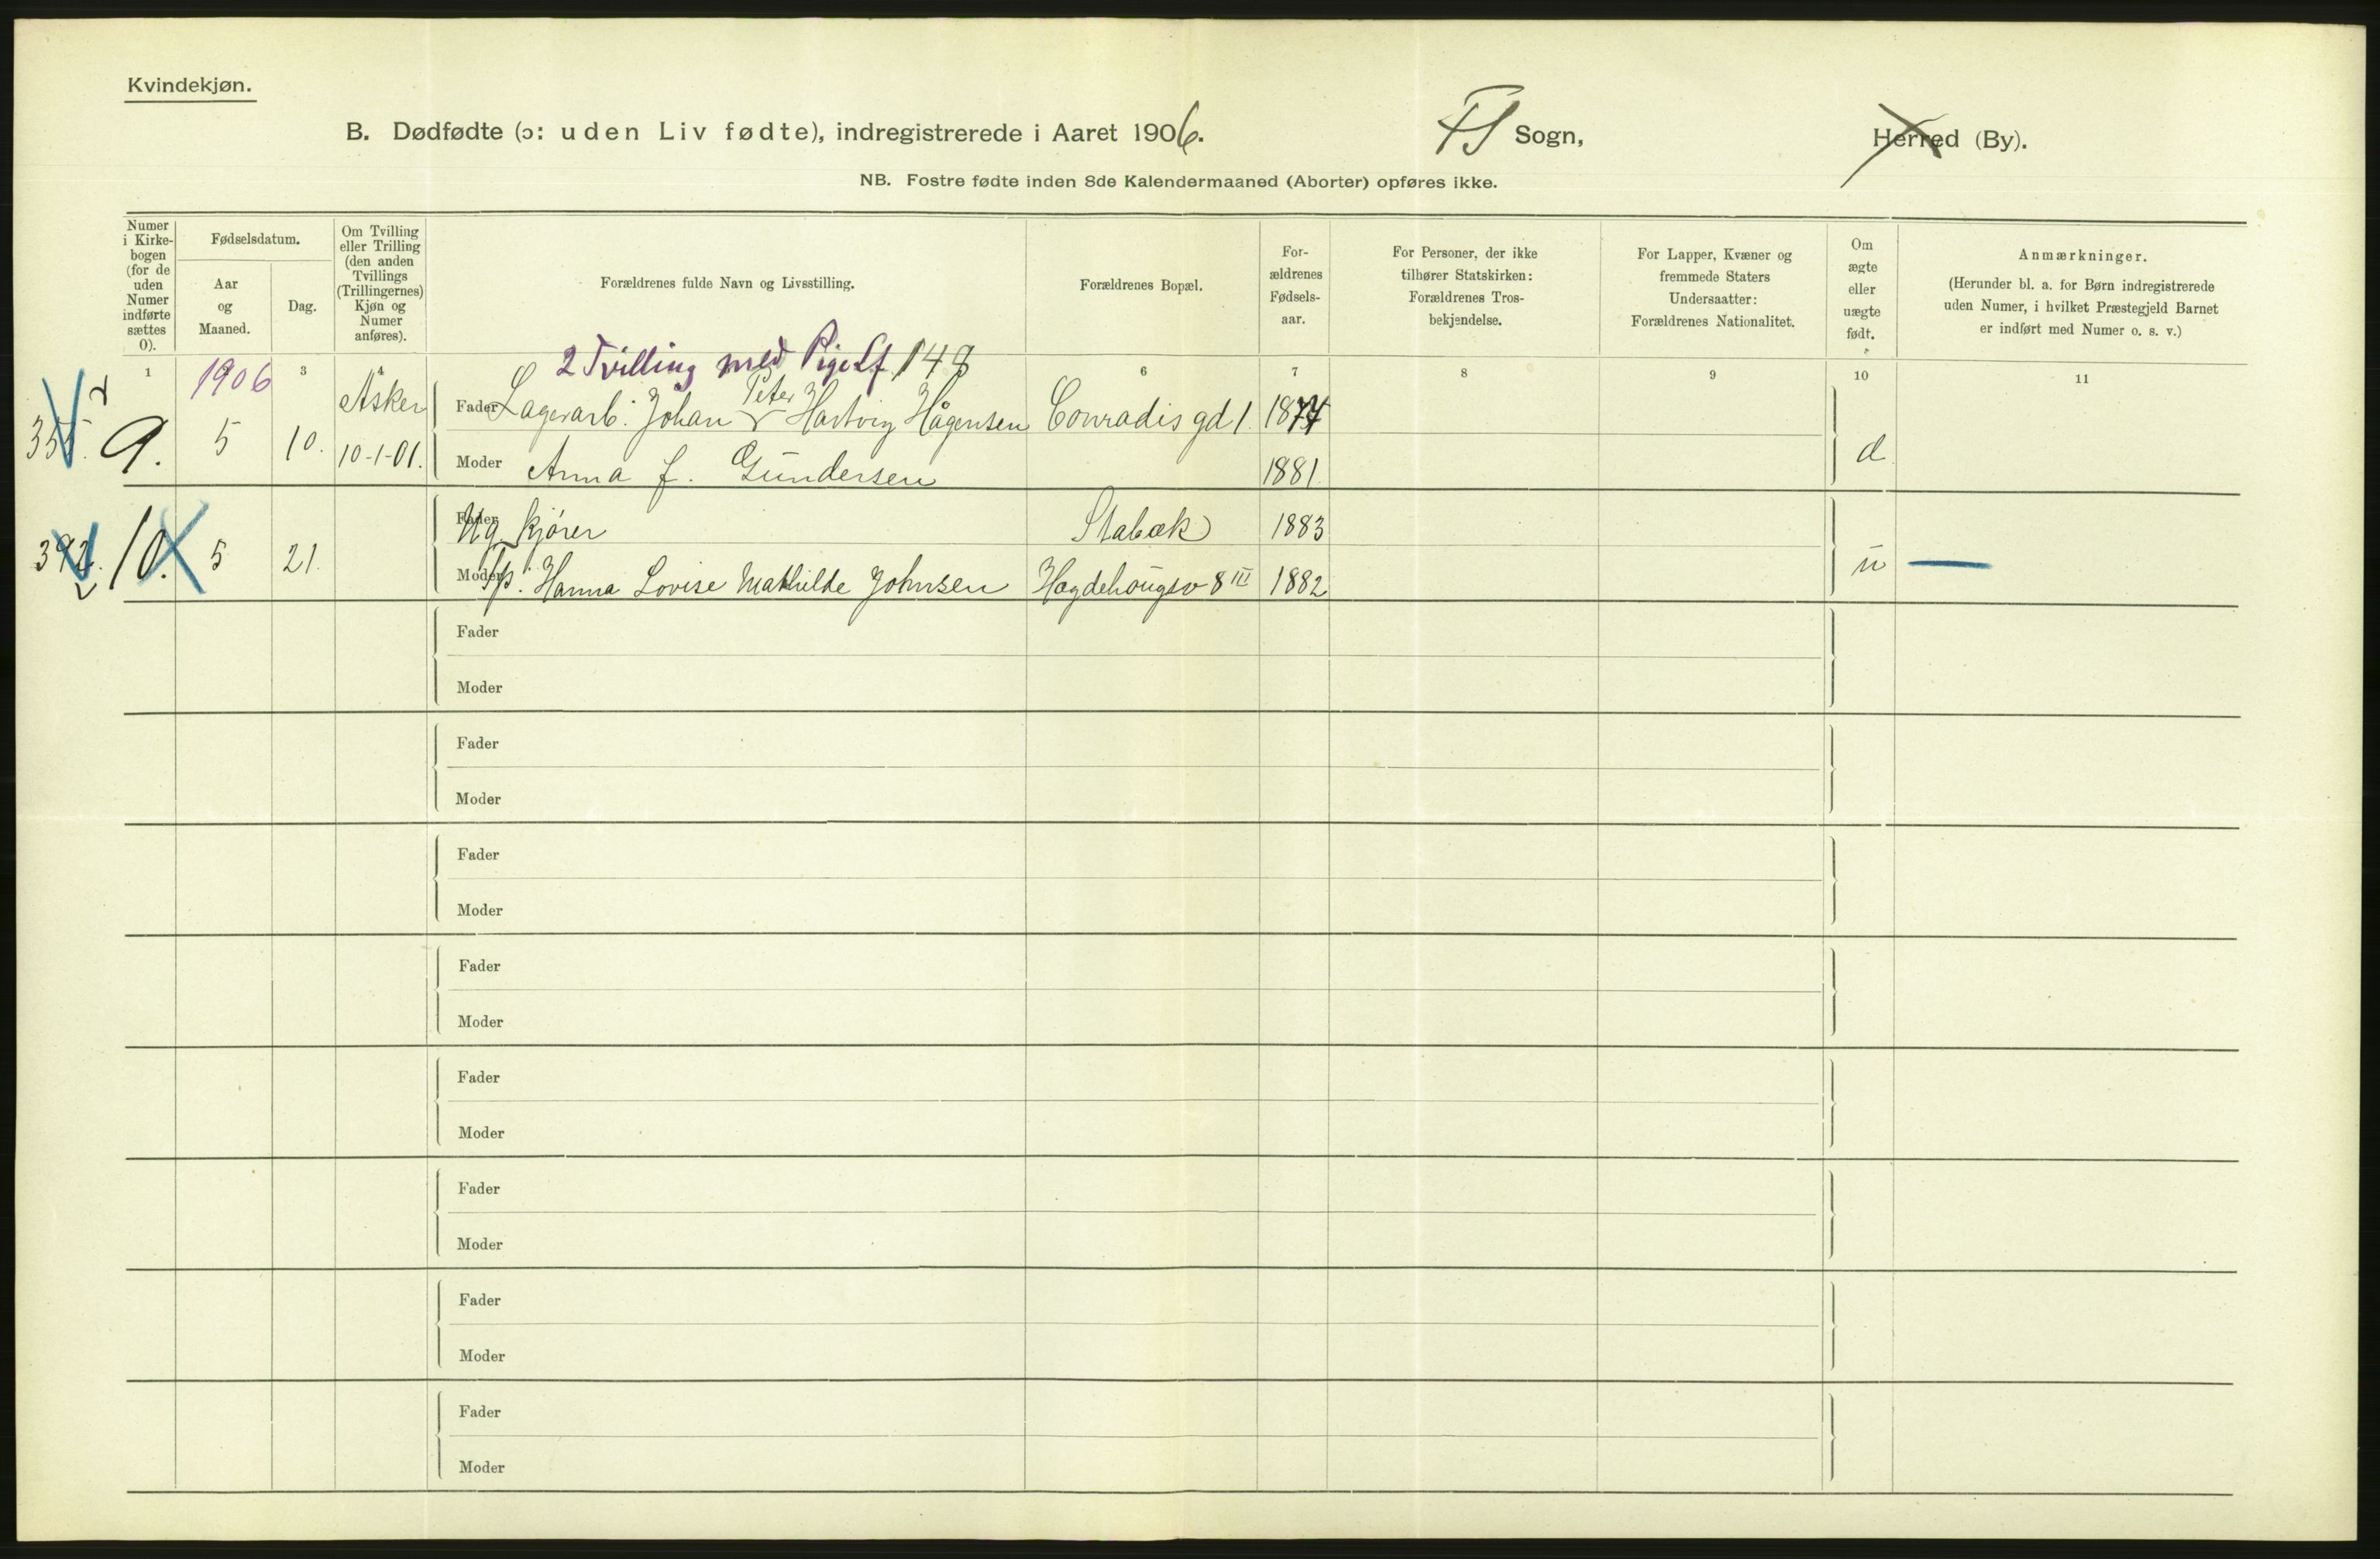 Kvindekjøn.
B. Dødfødte (ɔ: uden Liv fødte), indregistrerede i Aaret 1906. FJ Sogn, Herred (By).
NB. Fostre fødte inden 8de Kalendermaaned (Aborter) opføres ikke.
Numer i Kirke-
bogen
(for de
uden
Numer
indførte
sættes
0).
Fødselsdatum.
Aar
og
Maaned.
Dag.
Om Tvilling
eller Trilling
(den anden
Tvillings
(Trillingernes)
Kjøn og
Numer
anføres).
Forældrenes fulde Navn og Livsstilling.
Forældrenes Bopæl.
For-
ældrenes
Fødsels-
aar.
For Personer, der ikke
tilhører Statskirken:
Forældrenes Tros-
bekjendelse.
For Lapper, Kvæner og
fremmede Staters
Undersaatter:
Forældrenes Nationalitet.
Om
ægte
eller
uægte
født.
Anmærkninger.
(Herunder bl. a. for Børn indregistrerede
uden Numer, i hvilket Præstegjeld Barnet
er indført med Numer o. s. v.)
2 Tvilling med Pige Lf 148
1 1906 3 4 6 7 8 9 10 11
Asker Peter
Fader Lagerarb. Johan Hartvig Hågensen Conradis gd 1. 1874
355. 9. 5 10. 10-1-01. d
Moder Anna J. Gundersen 1881.
Fader Ug. kjører Stabæk 1883
392. 10. 5 21. u —
Moder Sp. Hanna Lovise Mathilde Johnsen Hægdehougsv 8 III 1882
Fader
Moder
Fader
Moder
Fader
Moder
Fader
Moder
Fader
Moder
Fader
Moder
Fader
Moder
Fader
Moder